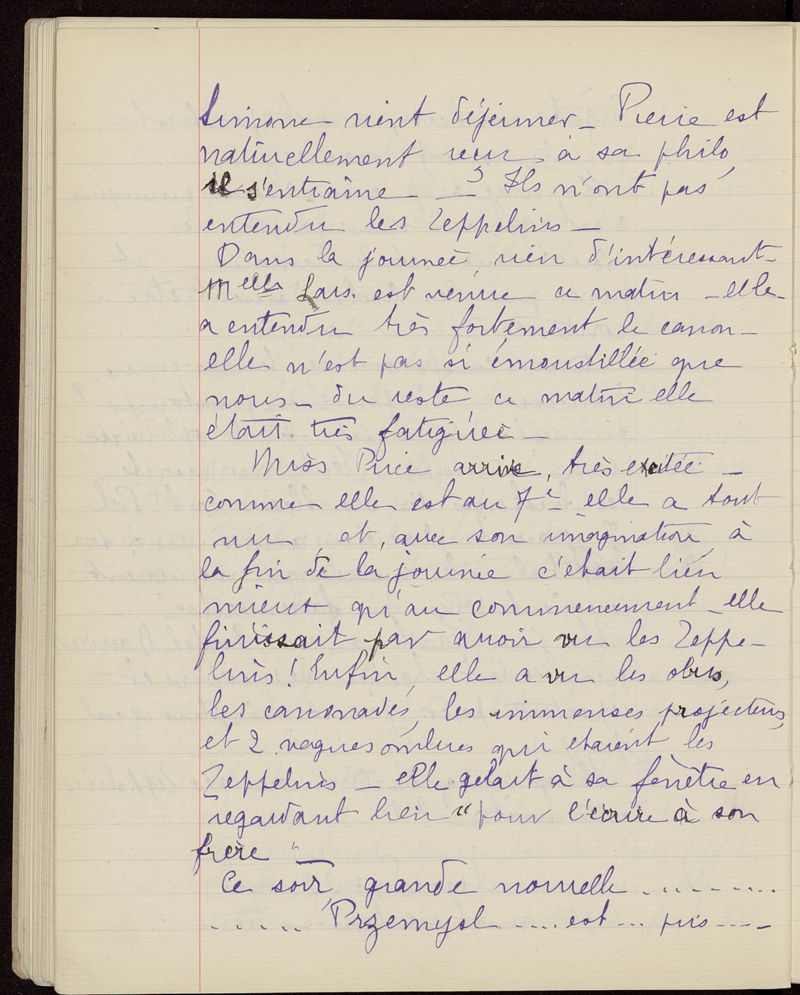 Simone vient déjeuner _ Pierre est
naturellement reçu à sa philo,
il s'entraîne _ Ils n'ont pas
entendu les Zeppelins _
Dans la journée, rien d'intéressant _
Melle Lars. est venue ce matin _ elle
a entendu très fortement le canon _
elle n'est pas si émoustillée que
nous _ du reste ce matin elle
était très fatiguée _
Miss Price arrive, très excitée _
comme elle est au 7e elle a tout
vu et, avec son imagination, à
la fin de la journée c'était bien
mieux qu'au commencement _ elle
finissait par avoir vu les Zeppe-
lins ! Enfin, elle a vu les obus,
les canonades, les immenses projecteurs,
et 2 vagues ombres qui étaient les
Zeppelins _ elle gelait à sa fenêtre en
regardant bien "pour l'écrire à son
frère" _
Ce soir, grande nouvelle .........
..... Przemysl .... est ... pris ....